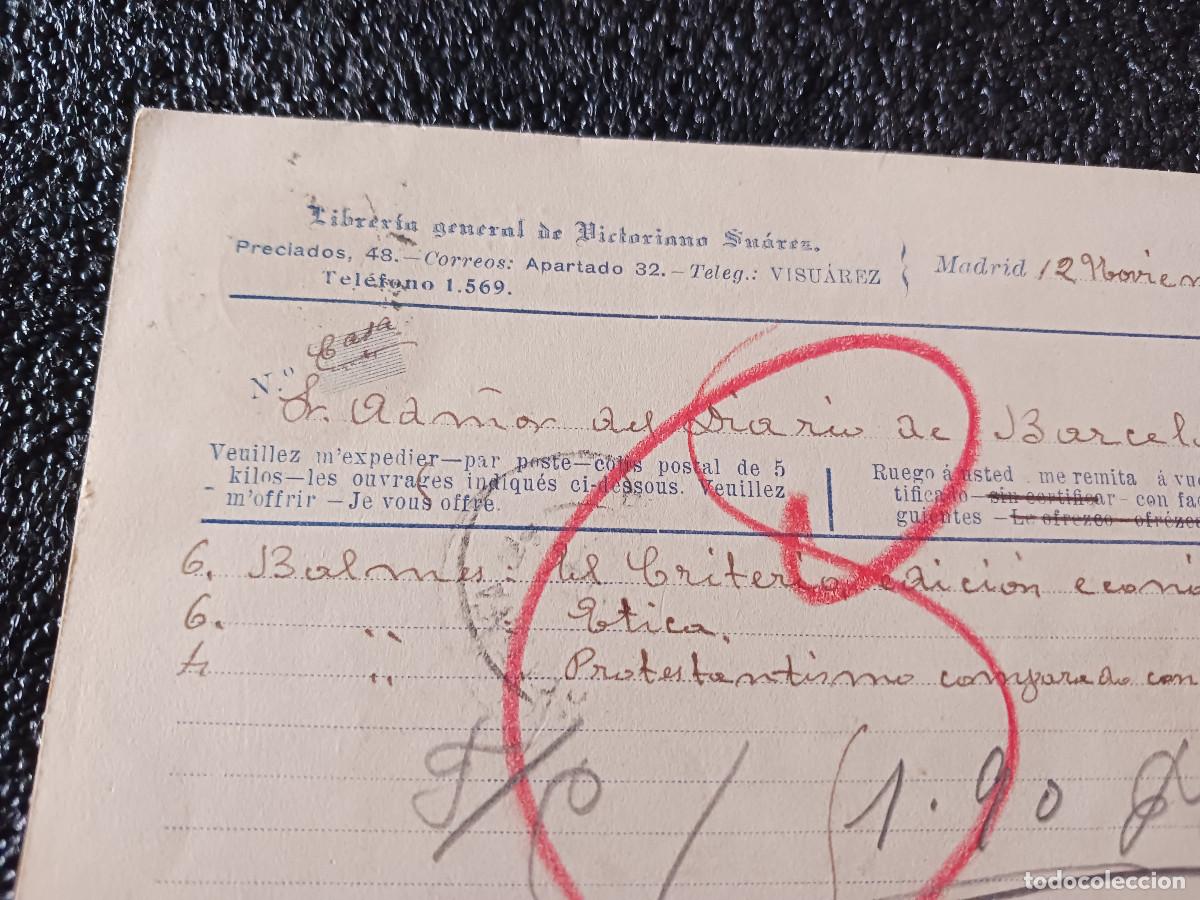 Librería general de Victoriano Suárez.
Preciados, 48.—Correos: Apartado 32.—Teleg.: VISUÁREZ
Teléfono 1.569.
Madrid 12 Noviem
Casa
N.º
Sr. Admor del Diario de Barcel
Veuillez m'expedier—par poste—colis postal de 5
kilos—les ouvrages indiqués ci-dessous. Veuillez
m'offrir —Je vous offre.
Ruego á usted me remita á vue
tificado—sin certificar - con fac
guientes —Le ofrezco—ofrézca
6. Balmes: El Criterio, edición econó
6. " Etica.
4 " Protestantismo comparado con
1.90
todocoleccion